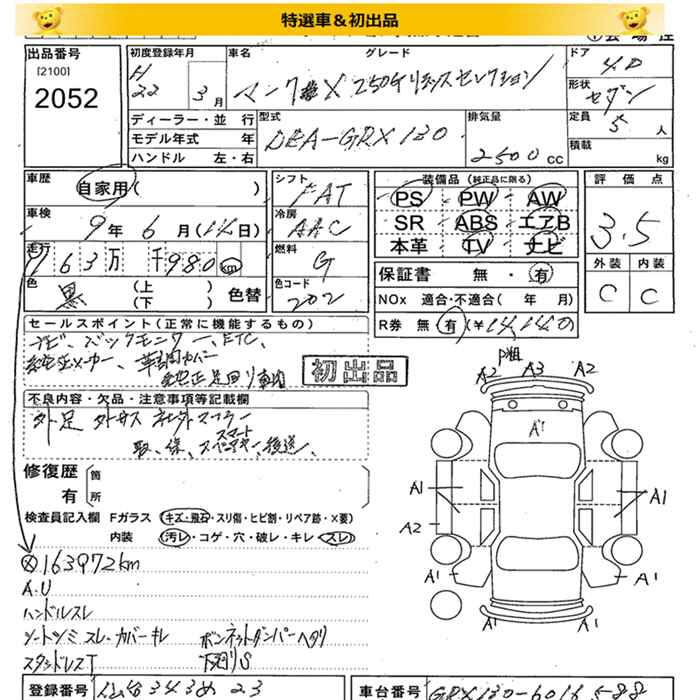 特選車&初出品
出品番号
[2100]
2052
初度登録年月
H22 3月
車名
グレード
マークX 250G リラックスセレクション
ドア
4D
形状
セダン
ディーラー・並 行
モデル年式 年
ハンドル 左・右
型式
DBA-GRX130
排気量
2500cc
定員
5人
積載
kg
車歴
自家用( )
シフト
FAT
装備品(純正品に限る)
PS PW AW
SR ABS エアB
本革 TV ナビ
評価点
3.5
車検
9年 6月(14日)
冷房
AAC
走行
163万 千980km
燃料
G
外装 内装
C C
保証書 無・有
NOx 適合・不適合( 年 月)
R券 無 有 (¥14,140)
色
黒
(上 )
(下 )
色替
色コード
202
セールスポイント(正常に機能するもの)
ナビ、バックモニター、ETC、
革調カバー
純正足回り車載
初出品
不良内容・欠品・注意事項等記載欄
外足 外マフ 社外マフラー
取、保、スペアキー、後送、
スマート
修復歴
有
箇
所
検査員記入欄 Fガラス キズ・飛石・スリ傷・ヒビ割・リペア跡・X要)
内装 汚レ・コゲ・穴・破レ・キレ・スレ)
163972km
A.U
ハンドルスレ
シートシミ スレ・カバーキレ ボンネットダンパーヘタリ
スタッドレスT 下廻りS
P粗
A2 A3 A2
A1
A1 A1
A2
A1 A1
登録番号
仙台343め 23
車台番号
GRX130-6016588